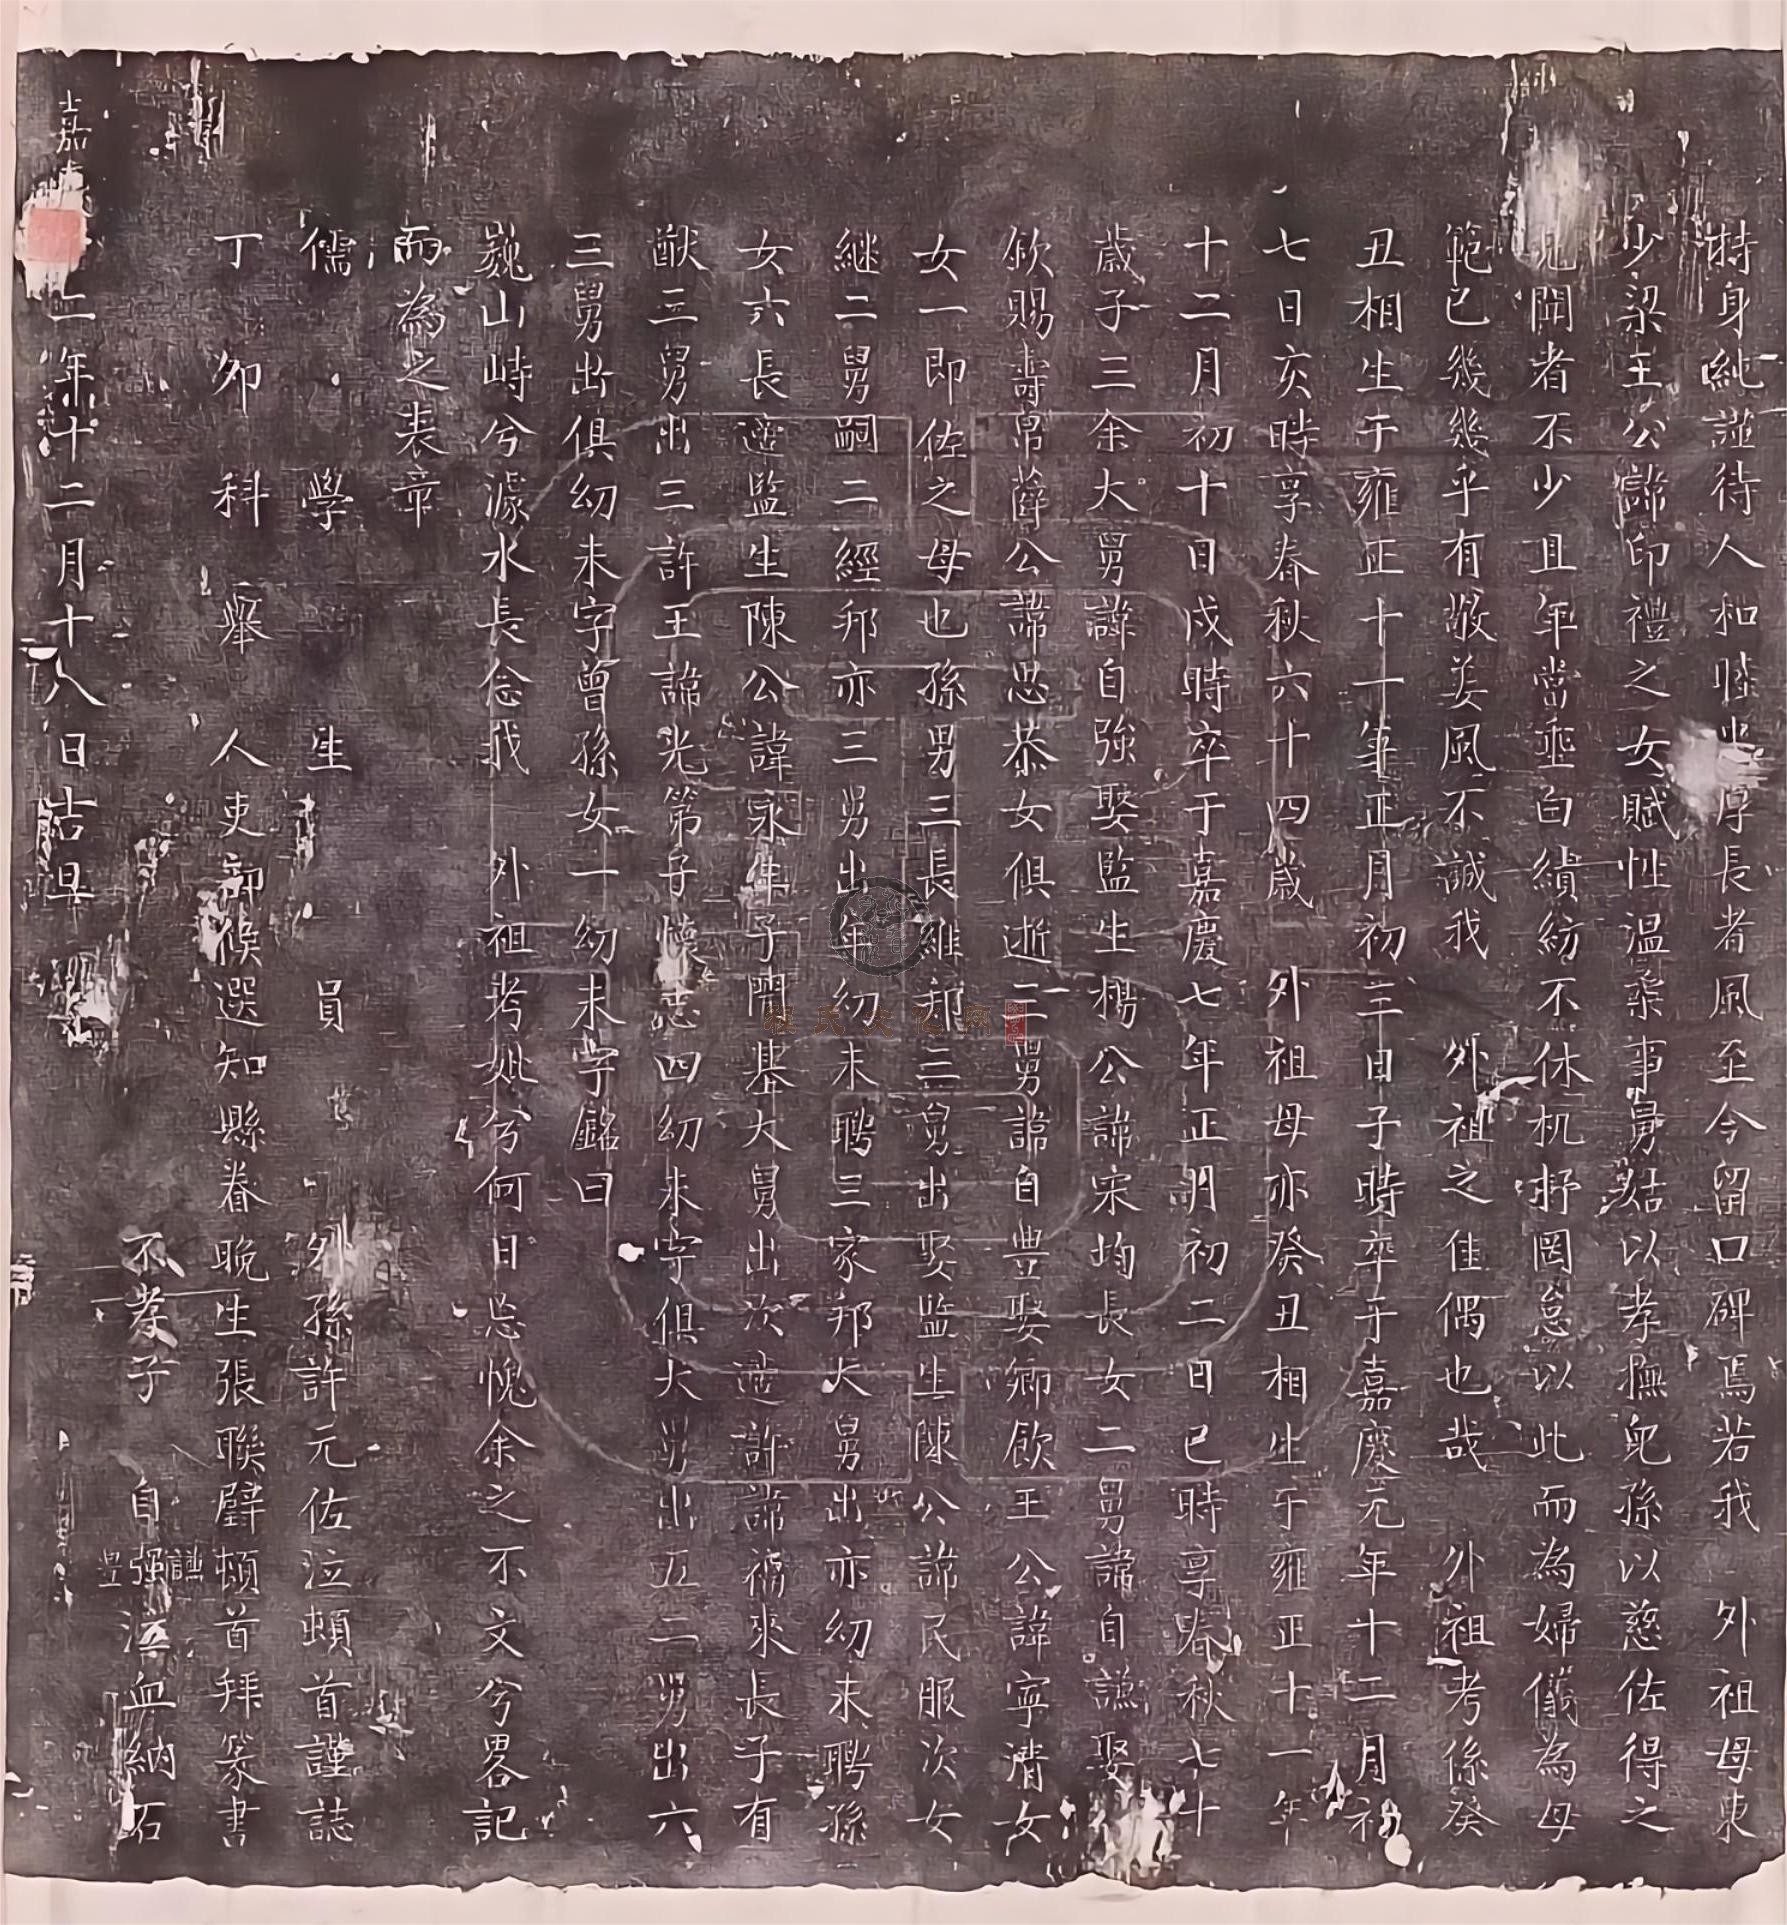 持身純謹待人和睦忠厚長者風至今留口碑焉若我　外祖母東
少梁王公諱印禮之女賦性温柔事舅姑以孝撫兒孫以慈佐得之
見聞者不少且年當垂白績紡不休机抒罔怠以此而為婦儀為母
範已幾幾乎有敬姜風不誠我　外祖之佳偶也哉　外祖考係癸
丑相生于雍正十一年正月初三日子時卒于嘉慶元年十二月初
七日亥時享春秋六十四歲　外祖母亦癸丑相生于雍正十一年
十二月初十日戌時卒于嘉慶七年正月初二日巳時享春秋七十
歲子三余大舅諱自強娶監生楊公諱宋均長女二舅諱自謙娶
欽賜壽帛薛公諱思恭女俱逝三舅諱自豊娶鄉飲王公諱寧清女
女一即佐之母也孫男三長維邦三舅出娶監生陳公諱民服次女
継二舅嗣二經邦亦三舅出年幼未聘三家邦大舅出亦幼未聘孫
女六長適監生陳公諱永年子開基大舅出次適許諱福来長子有
猷三舅出三許王諱光第子懷志四幼未字俱大舅出五二舅出六
三舅出俱幼未字曾孫女一幼未字銘曰
巍山峙兮澽水長念我　外祖考妣兮何日忘愧余之不文兮畧記
而為之表章
儒學生員　外孫許元佐泣頓首謹誌
丁卯科舉人吏部候選知縣眷晚生張聯辟頓首拜篆書
不孝子　自強謙豊泣血納石
嘉慶年十二月十八日吉旦
程氏文化网